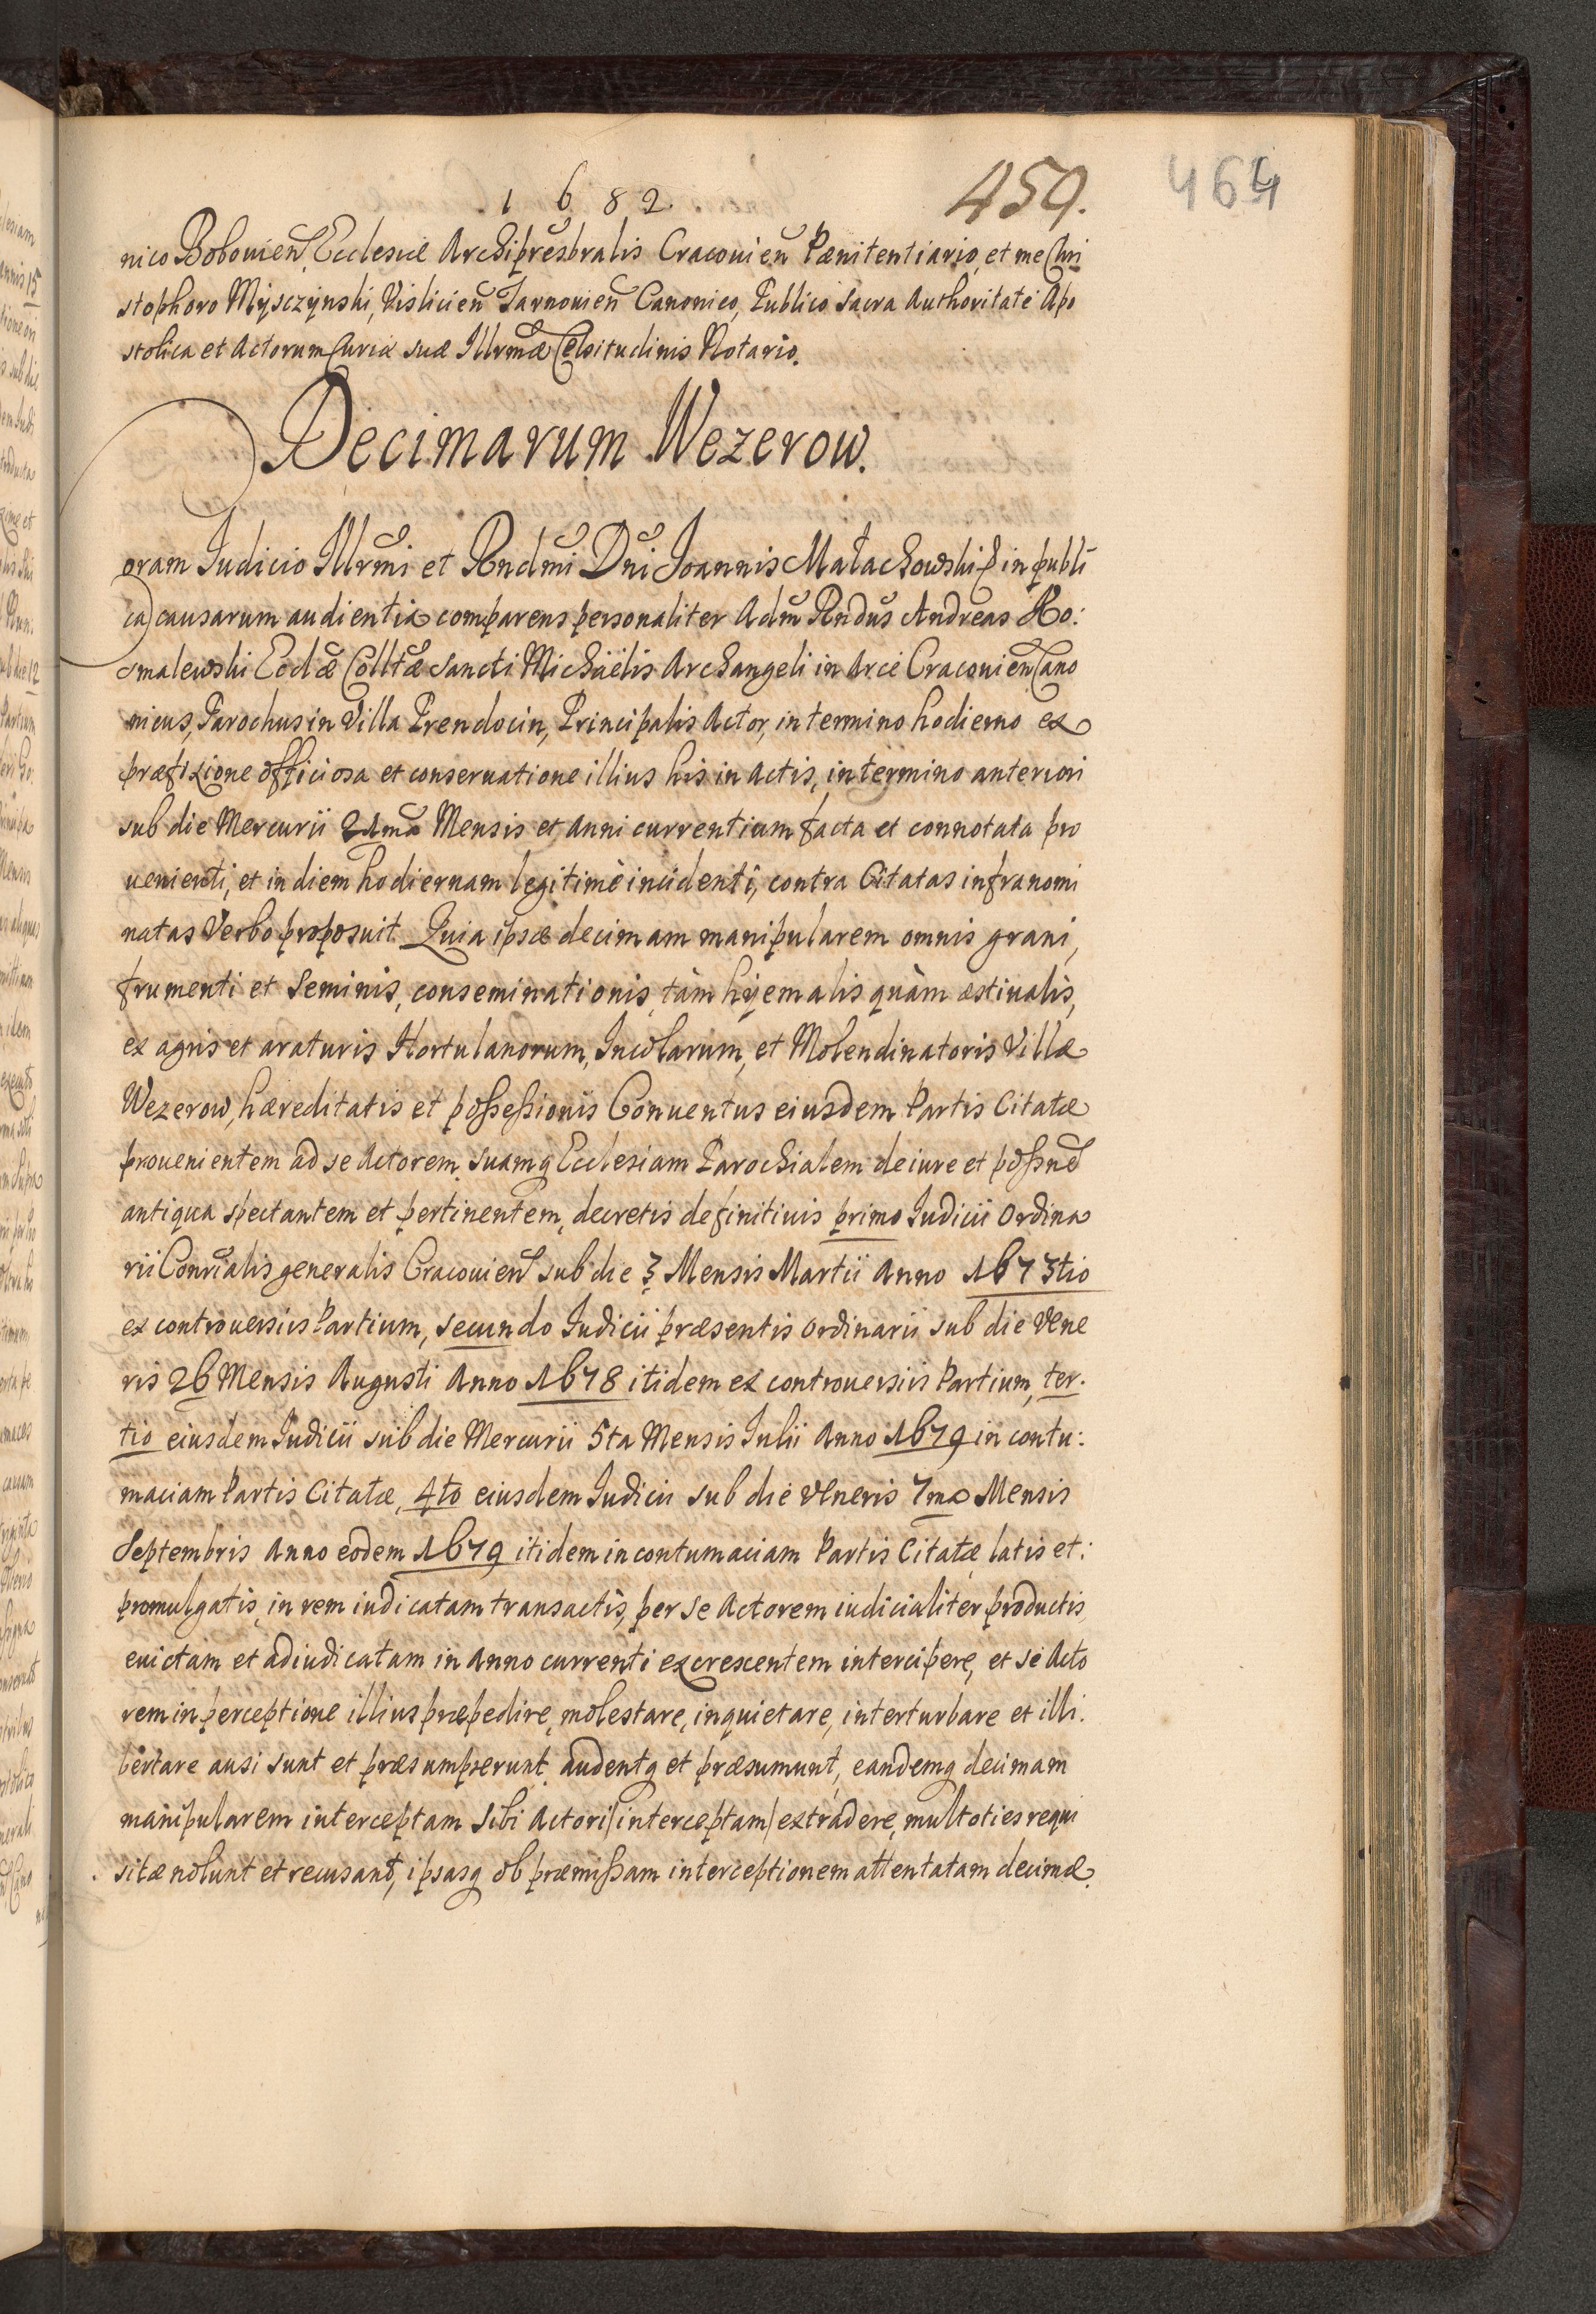 1682. 459. 464
nico Bobouien̄, Ecclesiæ Archipresbralis Cracouien̄ Pænitentiario, et me Chri
stophoro Mysczynski, Vislicien̄ Tarnouien̄ Canonico, Publico Sacra Authoritate Apo
stolica et Actorum Curiæ suæ Illrmæ Celsitudinis Notario.
Decimarum Wezerow.
Coram Iudicio Illrmi et Rndmi Dni Ioannis Małachowski p in publi
ca causarum audientia comparens personaliter Adm Rndus Andreas Ro:
smalewski Eccłæ Colltæ Sancti Michaëlis Archangeli in Arce Cracouien̄ Cano
nicus, Parochus in Villa Prendocin, Principalis Actor, in termino hodierno ex
præfixione officiosa et conseruatione illius his in Actis, in termino anteriori
sub die Mercurii 21ma Mensis et Anni currentium facta et connotata pro
uenienti, et in diem hodiernam legitimè incidenti, contra Citatas infranomi
natas Verbo proposuit. Quia ipsæ decimam manipularem omnis grani,
frumenti et Seminis, conseminationis, tàm hyemalis quàm æstiualis,
ex agris et araturis Hortulanorum, Incolarum, et Molendinatoris Villæ
Wezerow, hæreditatis et poßeßionis Conuentus eiusdem Partis Citatæ
prouenientem ad se Actorem suamq Ecclesiam Parochialem de iure et poßnē
antiqua spectantem et pertinentem, decretis definitiuis primo Iudicii Ordina
rii Conrialis generalis Cracouien̄ sub die 3 Mensis Martii Anno 1673tio
ex controuersiis Partium, secundo Iudicii præsentis Ordinarii sub die Vene
ris 26 Mensis Augusti Anno 1678 itidem ex controuersiis Partium, ter.
tio eiusdem Iudicii sub die Mercurii 5ta Mensis Iulii Anno 1679 in contu:
maciam Partis Citatæ, 4to eiusdem Iudicii sub die Veneris 7ma Mensis
Septembris Anno eodem 1679 itidem in contumaciam Partis Citatæ latis et:
promulgatis, in rem iudicatam transactis, per se Actorem iudicialiter productis
euictam et adiudicatam in Anno currenti excrescentem intercipere, et se Acto
rem in perceptione illius præpedire, molestare, inquietare, interturbare et illi.
bertare ausi sunt et præsumpserunt, audentq et præsumunt, eandemq decimam
manipularem interceptam Sibi Actori /interceptam/ extradere, multoties requi
sitæ nolunt et recusant, ipsasq ob præmißam interceptionem attentatam decimæ.